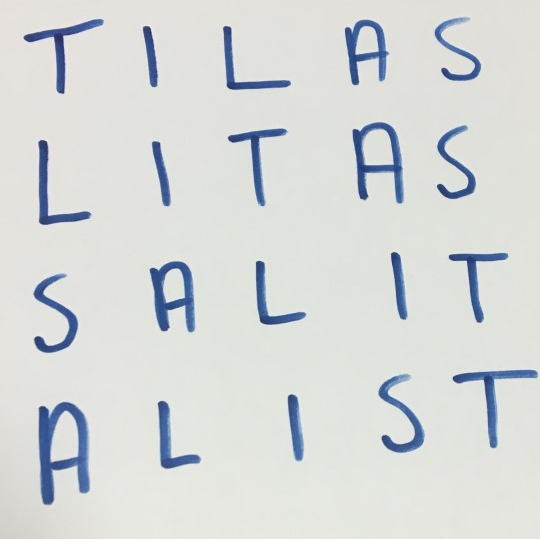 T I L A S
L I T A S
S A L I T
A L I S T